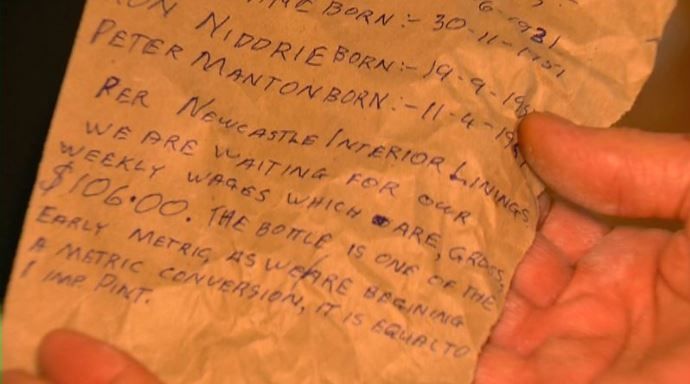 BORN:- 30-11-1951
NIDDRIE BORN:- 19-9-19
PETER MANTON BORN:- 11-4-19
PER NEWCASTLE INTERIOR LININGS
WE ARE WAITING FOR OUR
WEEKLY WAGES WHICH ARE, GROSS,
$106.00. THE BOTTLE IS ONE OF THE
EARLY METRIC, AS WE/ARE BEGINING
A METRIC CONVERSION, IT IS EQUAL TO
1 IMP. PINT.